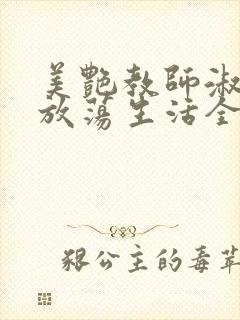 美艷教師淑
放蕩生活全
狠公主的毒苹